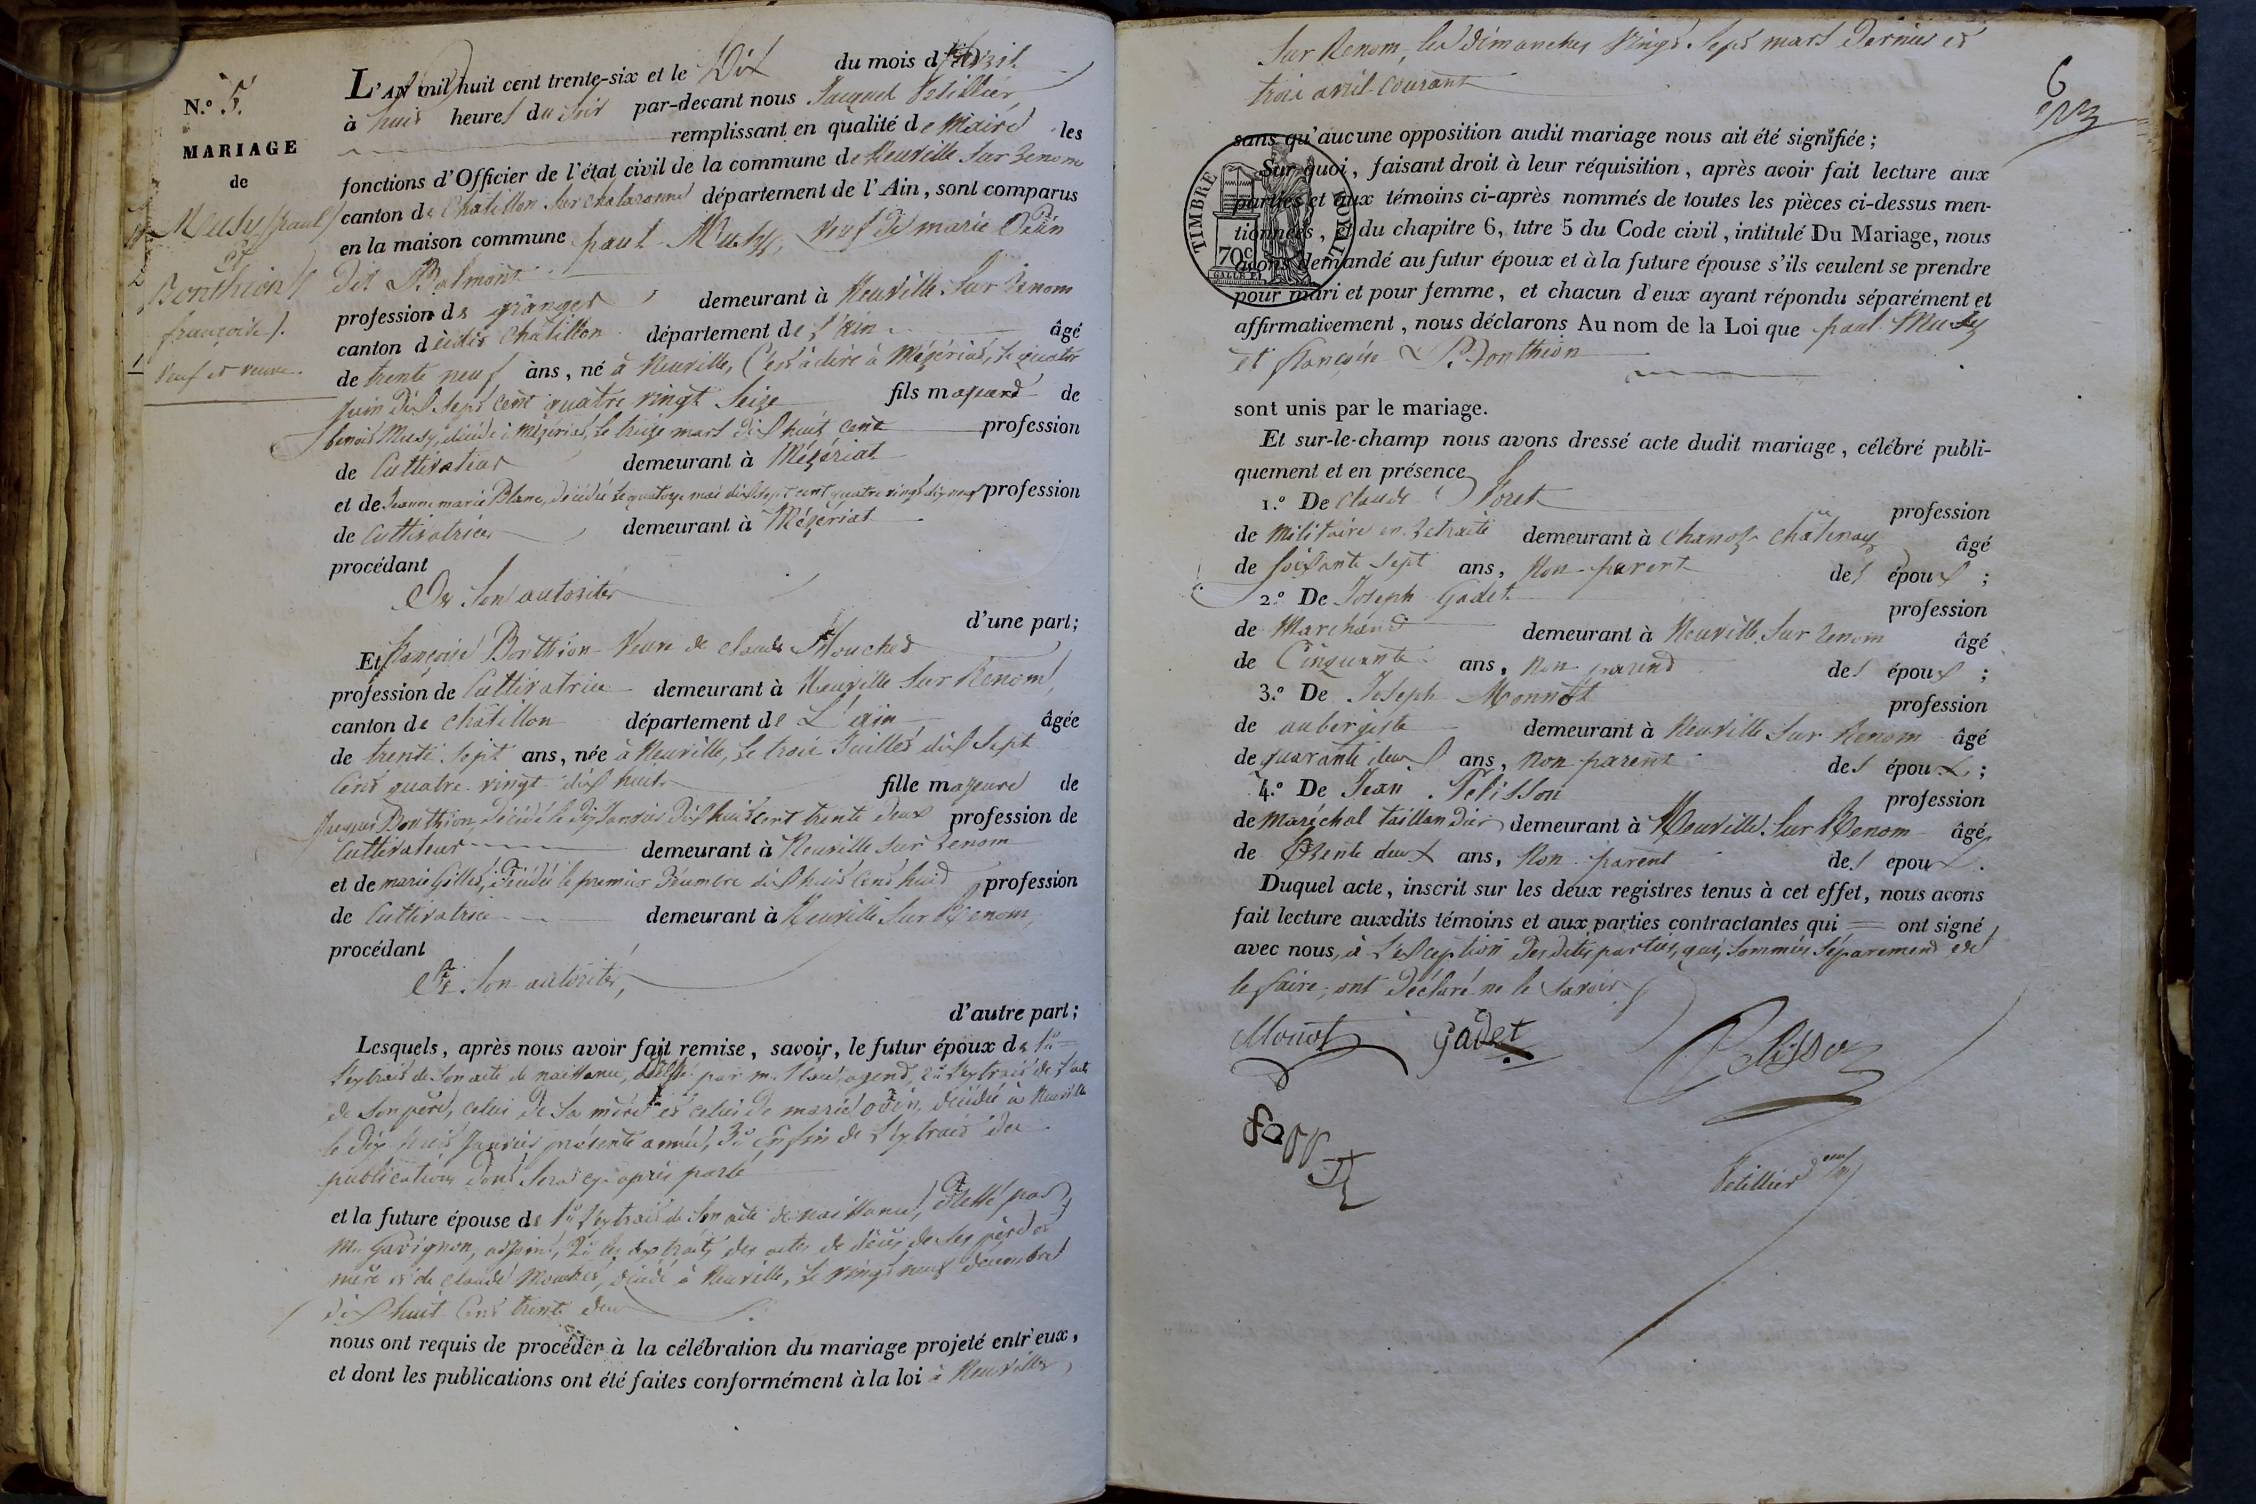 N.º 5.
MARIAGE
de
Musy (paul)
et
Bonthion
françoise).
Veuf et veuve.
L'AN mil huit cent trente-six et le Dix du mois d'avril
à huit heures du soir par-devant nous Jacques Petillier
remplissant en qualité de Maire les
fonctions d'Officier de l'état civil de la commune de Neuville sur Renom
canton de Chatillon sur chalaronne département de l'Ain, sont comparus
en la maison commune paul Musy, veuf de marie
dit Balmont
profession de granger demeurant à Neuville sur Renom
canton dudit Chatillon département de l'ain âgé
de trente neuf ans, né à Neuville, c'est à dire à Mézériat, le quatre
juin dix sept cent quatre vingt seize fils majeur de
benoit Musy, décédé à Mézériat, le treize mars dix huit cent profession
de Cultivateur demeurant à Mézériat
et de Jeanne marie Blanc, décédée le quatorze mai dix sept cent quatre vingt dix neuf profession
de Cultivatrice demeurant à Mézériat
procédant
De son autorité
d'une part;
Et françoise Bonthion veuve de claude Mouched
profession de Cultivatrice demeurant à Neuville sur Renom,
canton de chatillon département de L'ain âgée
de trente sept ans, née à Neuville, le trois Juillet dix sept
cent quatre vingt dix huit fille majeure de
Jacques Bonthion, décédé le dix Janvier dix huit cent trente deux profession de
Cultivateur demeurant à Neuville sur Renom
et de marie Gillet, décédée le premier décembre dix huit cent huit profession
de Cultivatrice demeurant à Neuville sur Renom,
procédant
De son autorité,
d'autre part;
Lesquels, après nous avoir fait remise, savoir, le futur époux de 1.º
l'extrait de son acte de naissance, par m. 2.º l'extrait de
de son père, celui de sa mère et celui de marie décédée à Neuville
le dix huit Janvier présente année, 3.º Enfin de l'extrait des
publications dont sera cy-après parlé
et la future épouse de 1.º l'extrait de son acte de naissance, par
Mr. Gavignon, adjoint, 2.º les extraits des actes de décès de ses père et
mère et de claude Mouched, décédé à Neuville, le vingt neuf décembre
dix huit cent trente deux
nous ont requis de procéder à la célébration du mariage projeté entr'eux,
et dont les publications ont été faites conformément à la loi à Neuville
6
sur Renom, les dimanches vingt sept mars dernier et
trois avril courant
sans qu'aucune opposition audit mariage nous ait été signifiée;
TIMBRE ROYAL
70c
Sur quoi, faisant droit à leur réquisition, après avoir fait lecture aux
parties et aux témoins ci-après nommés de toutes les pièces ci-dessus men-
tionnées, et du chapitre 6, titre 5 du Code civil, intitulé Du Mariage, nous
avons demandé au futur époux et à la future épouse s'ils veulent se prendre
pour mari et pour femme, et chacun d'eux ayant répondu séparément et
affirmativement, nous déclarons Au nom de la Loi que paul Musy
et françoise Bonthion
sont unis par le mariage.
Et sur-le-champ nous avons dressé acte dudit mariage, célébré publi-
quement et en présence
1.º De Claude foret profession
de Militaire en retraite demeurant à Chanoz Châtenay âgé
de soixante sept ans, Non parent des époux;
2.º De Joseph Gadet profession
de Marchand demeurant à Neuville sur Renom âgé
de Cinquante ans, non parend des époux;
3.º De Joseph Monnot profession
de aubergiste demeurant à Neuville sur Renom âgé
de quarante deux ans, non parent des époux;
4.º De Jean Pelisson profession
de maréchal taillandier demeurant à Neuville sur Renom âgé
de trente deux ans, Non parent des époux.
Duquel acte, inscrit sur les deux registres tenus à cet effet, nous avons
fait lecture auxdits témoins et aux parties contractantes qui ont signé
avec nous, à L'exception desdites parties, qui, sommées séparement de
le faire, ont déclaré ne le savoir
Monot Gadet Pelisson
Petillier